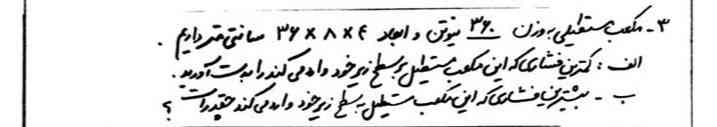 ۳- مکعب مستطیلی به وزن ۳۶۰ نیوتن و ابعاد ۳۶ × ۸ × ۴ سانتی متر داریم .
الف : کمترین فشاری که این مکعب مستطیل بر سطح زیر خود وارد می کند را بدست آورید .
ب - بیشترین فشاری که این مکعب مستطیل به سطح زیر خود وارد می کند چقدر است ؟